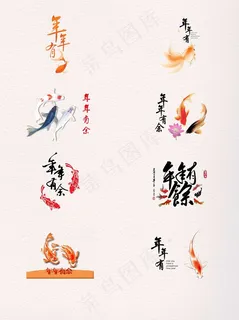 年年有
年年有
年年有余
年年有
年年有余
年年有餘
年年有余
年年有